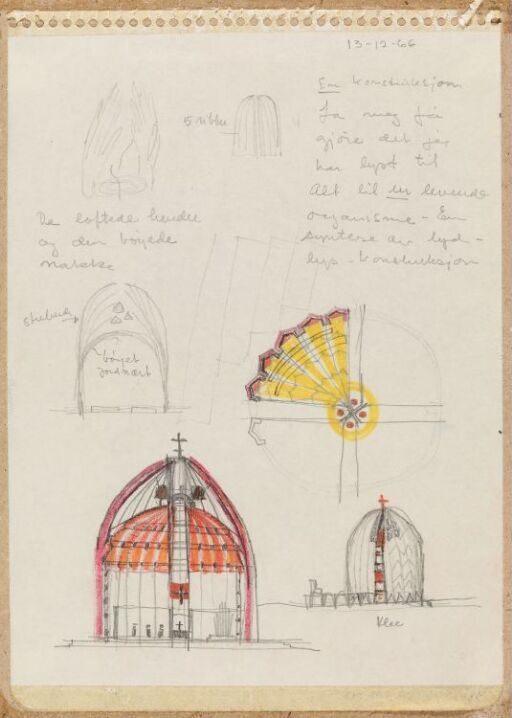 13-12-66
En konstruksjon
La meg få
gjøre det jeg
har lyst til
Alt til en levende
organisme - En
syntese av lyd -
lys - konstruksjon
5 ribbe
De løftede hender
og den bøyede
nakke
bøyet
jordnært
Klee